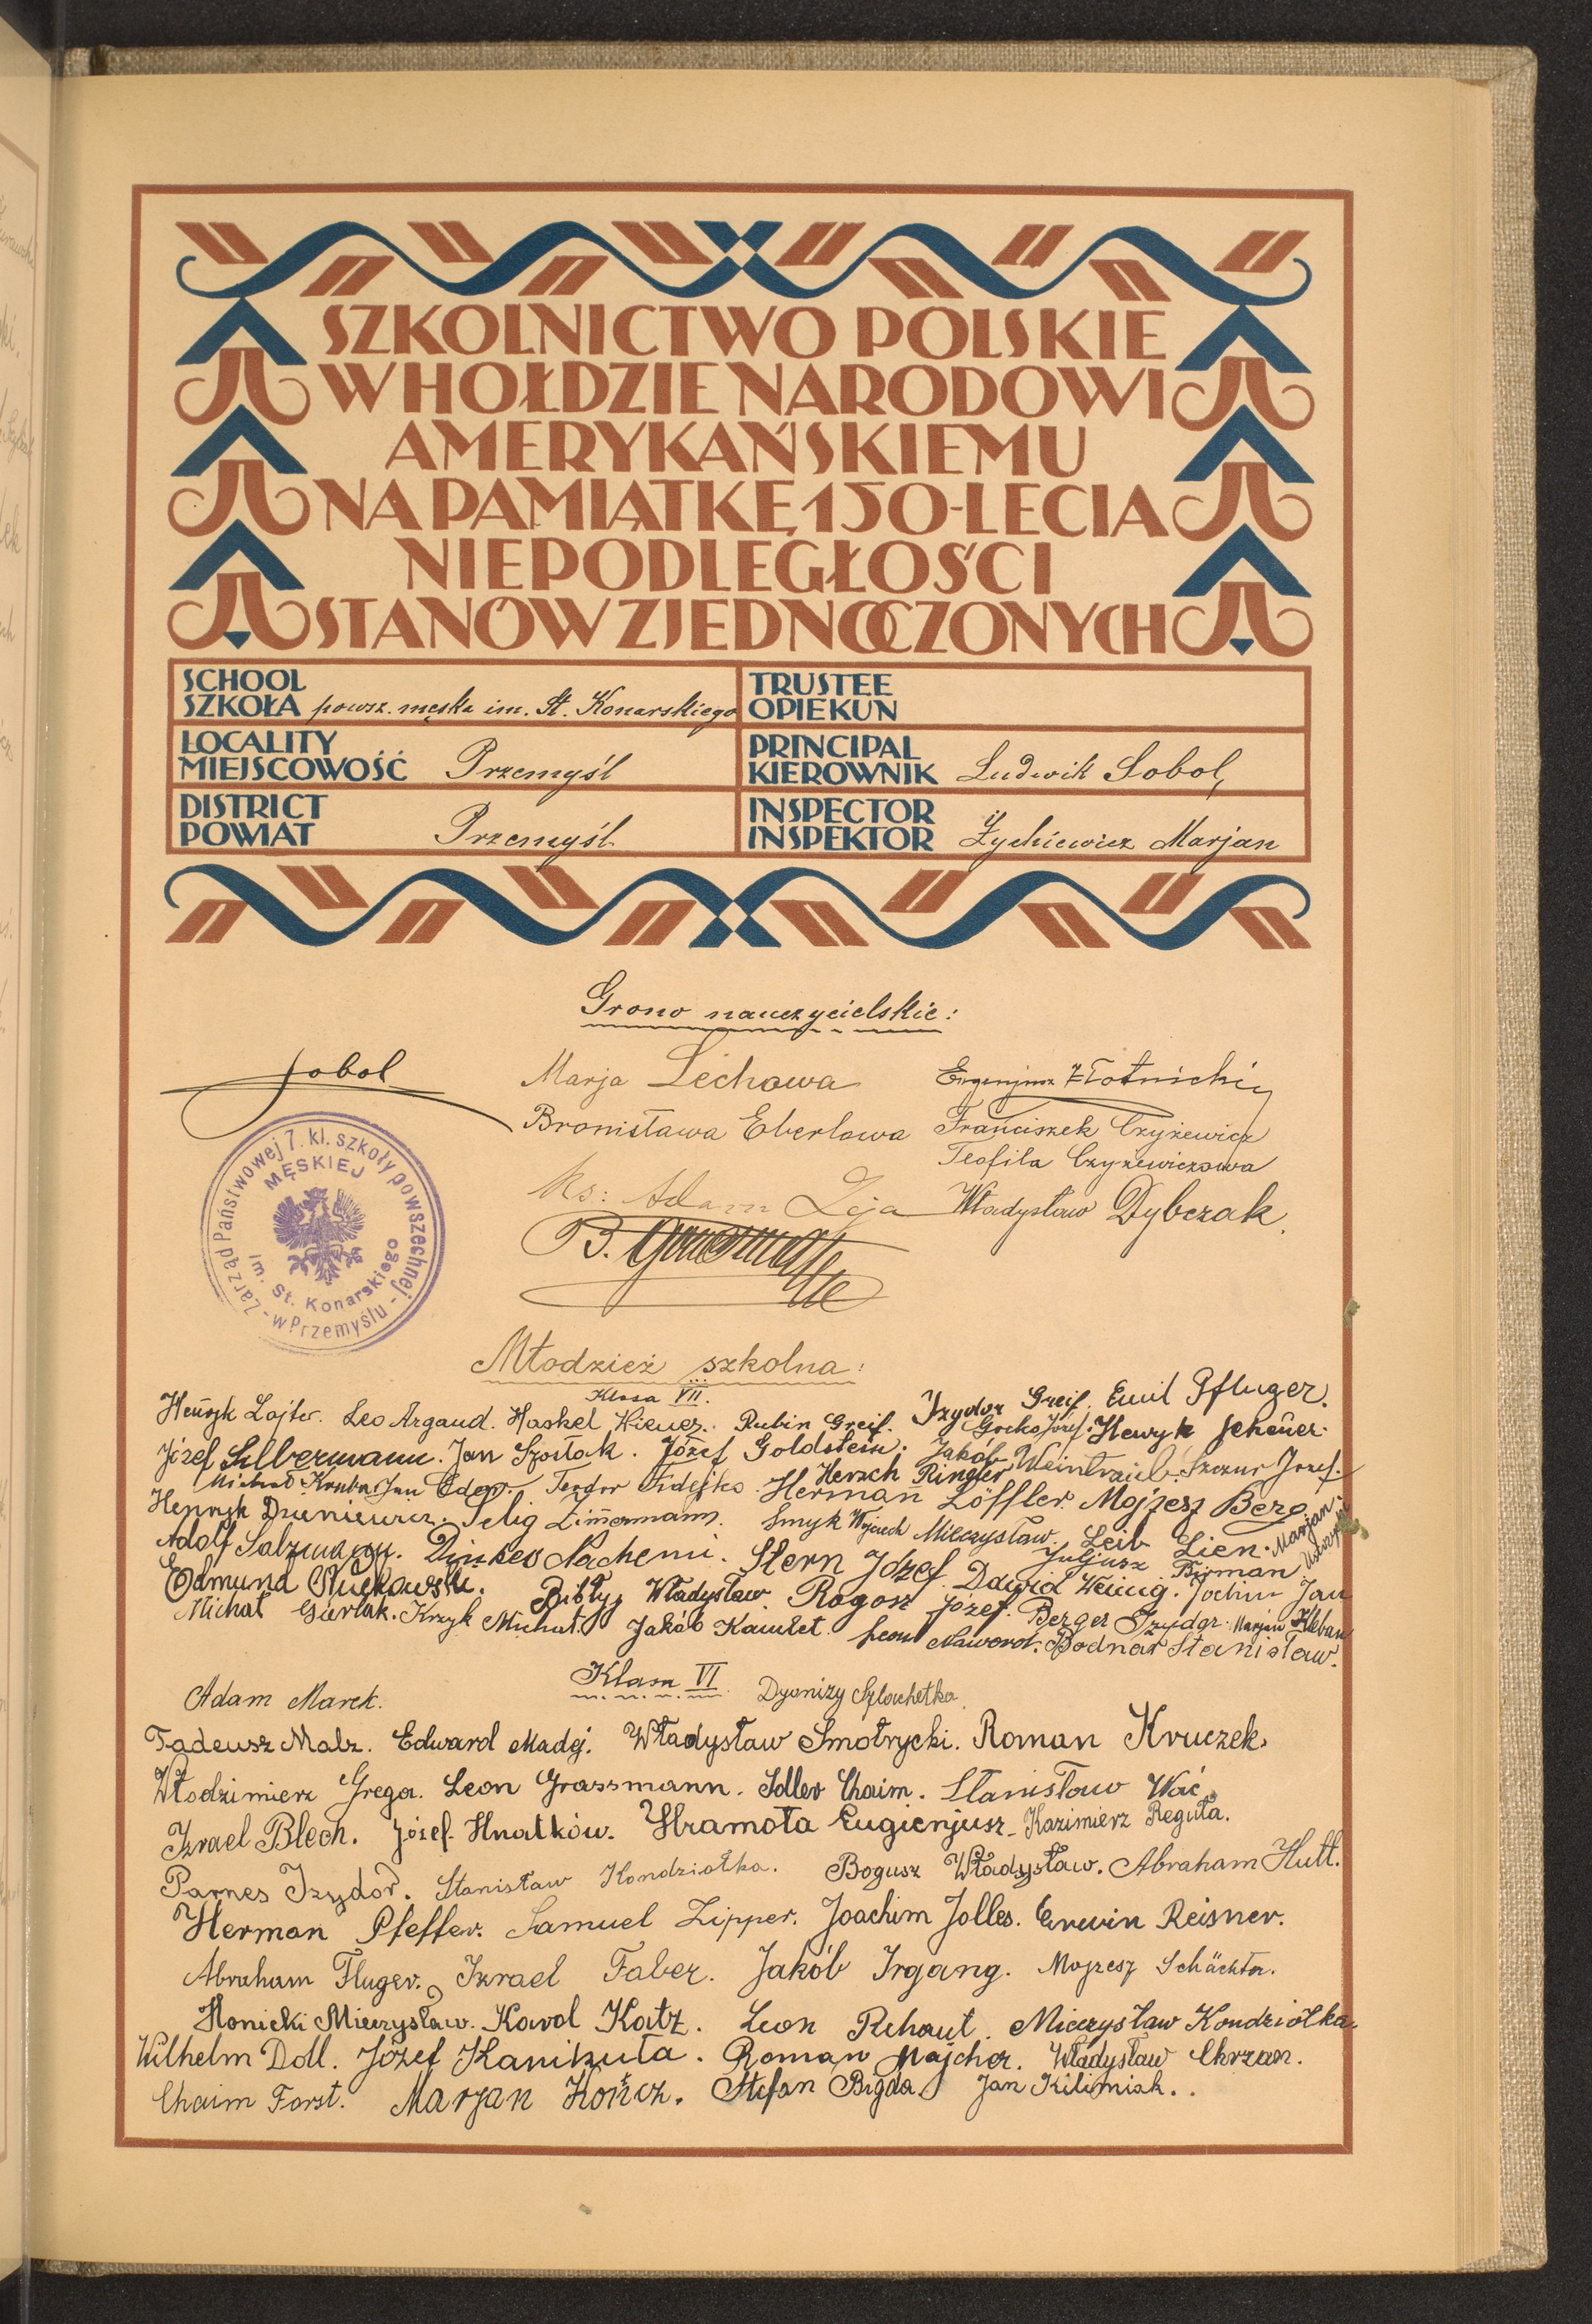 SZKOLNICTWO POLSKIE
W HOŁDZIE NARODOWI
AMERYKAŃSKIEMU
NA PAMIĄTKĘ 150-LECIA
NIEPODLEGŁOŚCI
STANÓW ZJEDNOCZONYCH
SCHOOL
SZKOŁA powsz. męska im. St. Konarskiego
TRUSTEE
OPIEKUN
LOCALITY
MIEJSCOWOŚĆ Przemyśl
PRINCIPAL
KIEROWNIK Ludwik Sobol,
DISTRICT
POWIAT Przemyśl
INSPECTOR
INSPEKTOR Żychiewicz Marjan
Grono nauczycielskie:
Sobol
Marja Lechowa
Eugenjusz Złotnicki
Bronisława Eberlowa
Franciszek Czyżewicz
Teofila Czyżewiczowa
ks: Adam Zeja
Władysław Dybczak.
B.
Zarząd Państwowej 7. kl. szkoły powszechnej - w Przemyślu -
MĘSKIEJ
im. St. Konarskiego
Młodzież szkolna:
Klasa VII.
Henryk Lajter. Leo Argand. Haskel Rubin Greif. Izydor Greif. Emil Pfluger.
Gocko Józef. Henryk Scheuer.
Józef Silbermann. Jan Szostak. Józef Goldstein. Jakób Weintraub. Szczur Józef.
Michał Jan Teodor Fidejko. Hersch Ringler Herman Löffler. Mojżesz Berg.
Henryk Selig Zimermann. Smyk Wojciech Mieczysław. Leib Lien. Marjan
Adolf Salzmann. Nachemi. Stern Józef. Juljusz Birman
Edmund Bibły Władysław. Rogosz Józef. Dawid Jochim Jan
Michał Gurlak. Krzyk Michał. Jakób Kamlet. Leon Nawrot. Berger Izydor. Marjan Hleban
Bodnar Stanisław.
Klasa VI.
Adam Marek. Dyonizy Szlachetka.
Tadeusz Malz. Edward Madej. Władysław Smotrycki. Roman Kruczek.
Włodzimierz Grega. Leon Grassmann. Adler Chaim. Stanisław Wać.
Izrael Blech. Józef Hnatków. Hramota Eugienjusz. Kazimierz Reguła.
Parnes Izydor. Stanisław Kondziołka. Bogusz Władysław. Abraham Hutt.
Herman Pfeffer. Samuel Zipper. Joachim Jolles. Erwin Reisner.
Abraham Fluger. Izrael Faber. Jakób Irgang. Mojżesz Schächter.
Honicki Mieczysław. Karol Katz. Leon Rehaut. Mieczysław Kondziołka.
Wilhelm Doll. Józef Kanikuła. Roman Majcher. Władysław Chrzan.
Chaim Forst. Marjan Kończ. Stefan Bigda. Jan Kiliminik.